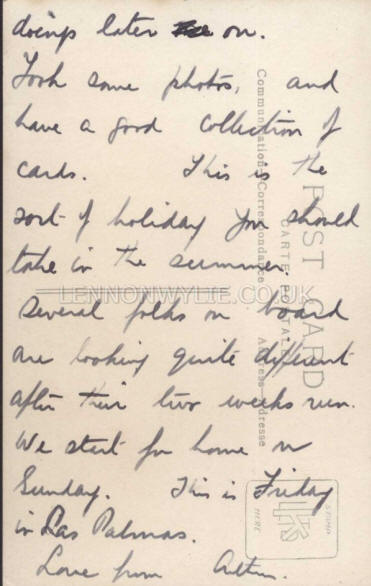 doings later on.
Took some photos, and
have a good collection of
cards. This is the
sort of holiday you should
take in the summer.
Several folks on board
are looking quite different
after their two weeks run.
We start for home on
Sunday. This is Friday
in Las Palmas.
Love from Arthur.
POST CARD
CARTE POSTALE
Communication/Correspondance
Address-Adresse
STAMP
HERE
LENNONWYLIE.CO.UK